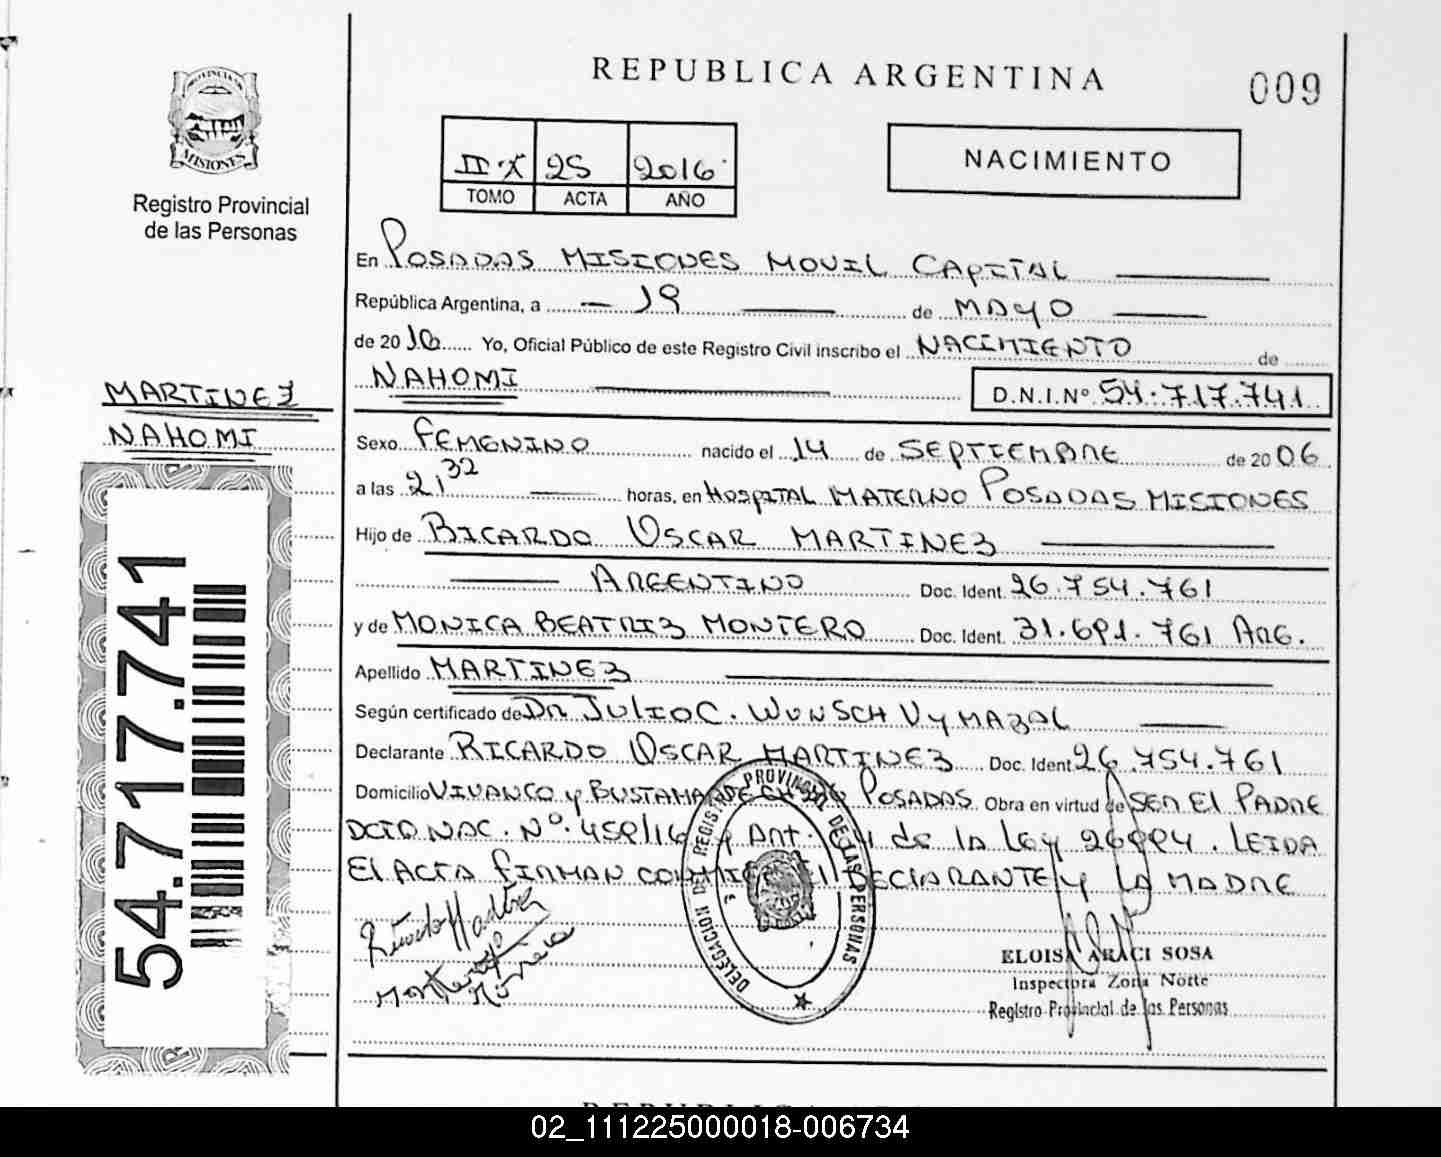 REPUBLICA ARGENTINA
009
PROVINCIA DE
MISIONES
Registro Provincial
de las Personas
II·X 25 2016
TOMO ACTA AÑO
NACIMIENTO
En POSADAS MISIONES MOVIL CAPITAL
República Argentina, a 19 de MAYO
de 2016 Yo, Oficial Público de este Registro Civil inscribo el NACIMIENTO de
NAHOMI D.N.I.Nº 54.717.741
MARTINEZ
NAHOMI
54.717.741
Sexo FEMENINO nacido el 14 de SEPTIEMBRE de 2006
a las 21,32 horas, en HOSPITAL MATERNO POSADAS MISIONES
Hijo de RICARDO OSCAR MARTINEZ
ARGENTINO Doc. Ident. 26.754.761
y de MONICA BEATRIZ MONTERO Doc. Ident. 31.691.761 ARG.
Apellido MARTINEZ
Según certificado de DR JULIO C. WUNSCH VYMAZAL
Declarante RICARDO OSCAR MARTINEZ Doc. Ident 26.754.761
Domicilio VIVANCO y BUSTAMANTE POSADAS Obra en virtud de SER EL PADRE
DCTO NAC. Nº. 459/16 y ART. de la Ley 26994. LEIDA
EL ACTA FIRMAN CONMIGO EL DECLARANTE y LA MADRE
DELEGACION DE REGISTRO PROVINCIAL DE LAS PERSONAS
ELOISA ARACI SOSA
Inspectora Zona Norte
Registro Provincial de las Personas
02_111225000018-006734